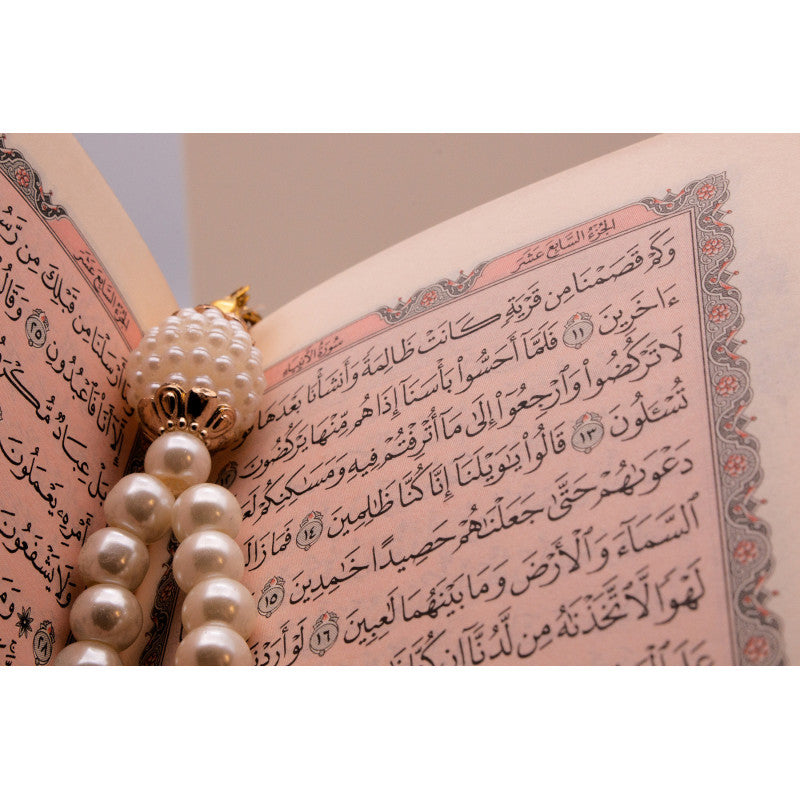 الجزء السابع عشر
سورة الأنبياء
وَكَمْ قَصَمْنَا مِن قَرْيَةٍ كَانَتْ ظَالِمَةً وَأَنشَأْنَا بَعْدَهَا
ءَاخَرِينَ ١١ فَلَمَّآ أَحَسُّوا۟ بَأْسَنَآ إِذَا هُم مِّنْهَا يَرْكُضُونَ
لَا تَرْكُضُوا۟ وَٱرْجِعُوٓا۟ إِلَىٰ مَآ أُتْرِفْتُمْ فِيهِ وَمَسَٰكِنِكُمْ
تُسْـَٔلُونَ ١٣ قَالُوا۟ يَٰوَيْلَنَآ إِنَّا كُنَّا ظَٰلِمِينَ ١٤ فَمَا زَالَت
دَعْوَىٰهُمْ حَتَّىٰ جَعَلْنَٰهُمْ حَصِيدًا خَٰمِدِينَ ١٥
ٱلسَّمَآءَ وَٱلْأَرْضَ وَمَا بَيْنَهُمَا لَٰعِبِينَ ١٦ لَوْ أَرَدْنَآ
لَهْوًا لَّٱتَّخَذْنَٰهُ مِن لَّدُنَّآ إِن كُنَّا
الجزء السابع عشر
مِن قَبْلِكَ مِن رَّسُولٍ
فَٱعْبُدُونِ ٢٥ وَقَالُوا۟
بَلْ عِبَادٌ مُّكْرَمُونَ
بِأَمْرِهِۦ يَعْمَلُونَ
وَلَا يَشْفَعُونَ
٢٨ وَمَن